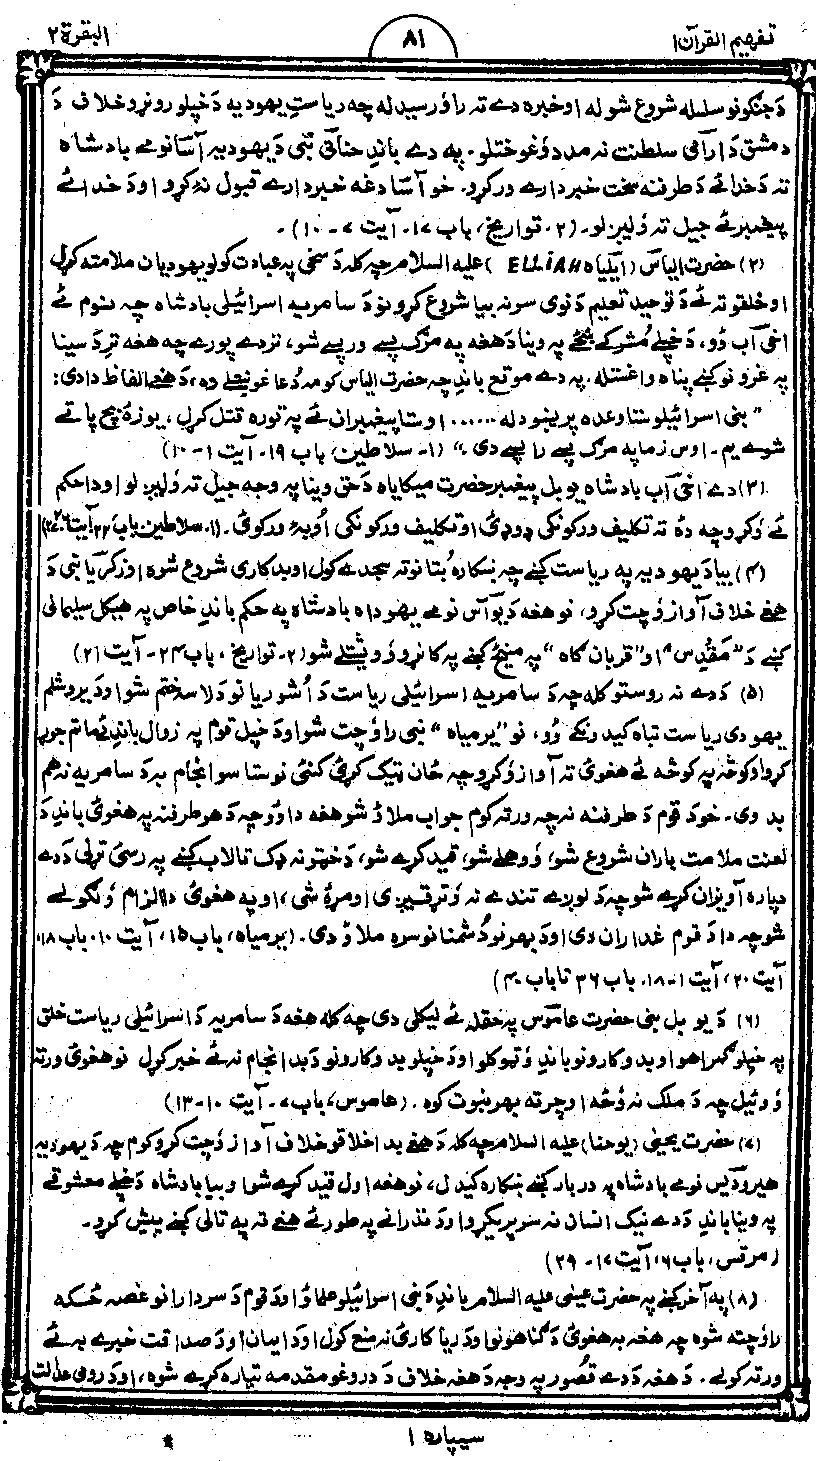 تفهیم القرآن ۱
۸۱
البقرة ۲
دَ جنګونو سلسله شروع شوله اوخبره دے ته راوٗرسیدله چه ریاستِ یهودیه دَ خپلو رونړو خلاف دَ
دمشق دَ ارآمی سلطنت نه مدد وُغوختلو. په دے باندِ حنآنی نبی دَ یهودیه آسا نومے بادشاه
ته دَ خدائے دَ طرفنه سخت خبردارے ورکړو. خو آسا دغه خبردارے قبول نه کړو اودَ خدائے
پیغمبرئے جیل ته وُلیږلو. (۲. تواریخ، باب ۱۷. آیت ۷ــ۱۰) .
(۲) حضرت الیاسؑ (ایلیاه ELLiAH) علیه السلام چه کله دَ سختی په عبادت کولو یهودیان ملامته کړل
اوخلقو ته ئے دَ توحید تعلیم دَ نوی سونه بیا شروع کړو نو دَ سامریه اسرائیلی بادشاه چه نوم ئے
اخی آب وُو، دَ خپلے مُشرکے ښځے په وینا دَهغه په مرګ پسے ورپسے شو، نزدے پورے چه هغه تر دَ سینا
په غرونو کښے پناه واغستله. په دے موقع باندِ چه حضرت الیاس کومه دُعا غوښتلے ده، دَ هغے الفاظ دادی:
"بنی اسرائیلو ستا وعده پریښودله ...... او ستا پیغمبران ئے په توره قتل کړل، یوزهٔ بچ پاتے
شوے یم. اوس زما په مرګ پسے راپسے دی." (۱. سلاطین، باب ۱۹. آیت ۱ــ۱۰)
(۳) دے اخی آب بادشاه یو بل پیغمبر حضرت میکایاه دَ حق وینا په وجه جیل ته وُلیږلو اودا حکم
ئے وُکړو چه دهٔ ته تکلیف ورکونکی ډوډئ او تکلیف ورکونکی اوبهٔ ورکوئ. (۱. سلاطین باب ۲۲ آیت ۲۶ـ۲۷)
(۴) بیا دَ یهودیه په ریاست کښے چه ښکاره بُتانو ته سجدے کول اوبدکاری شروع شوه اوزکریا نبی دَ
هغے خلاف آواز وُچت کړو، نو هغه دَ یوآس نومے یهوداه بادشاه په حکم باندِ خاص په هیکل سلیمانی
کښے دَ "مَقدِس" او "قربان ګاه" په مینځ کښے په کانړو وُویشتلے شو (۲. تواریخ، باب ۲۴. آیت ۲۱)
(۵) دَ دے نه روستو کله چه دَ سامریه اسرائیلی ریاست دَ اُشوریانو دَ لاسه ختم شو اودَ یروشلم
یهودی ریاست تباه کیدونکے وُو، نو "یرمیاه" نبی راوُچت شو اودَ خپل قوم په زوال باندِئے ماتم جوړ
کړو اوکوڅه په کوڅه ئے هغوئ ته آواز وُکړو چه ځان نیک کړئ کنئی نو ستاسو انجام به دَ سامریه نه هم
بد وی. خو دَ قوم دَ طرفنه نه چه ورته کوم جواب ملاؤ شو هغه دا وُو چه دَ هر طرفنه په هغوئ باندِ دَ
لعنت ملامت باران شروع شو، وُوهلے شو، قید کړے شو، دَ ختو نه ډک تالاب کښے په رسئ تړلی دَ دے
دپاره آویزان کړے شو چه دَ لوږے تندے نه وُترقیږی اومړ شی، اوپه هغوئ دا الزام وُلګولے
شو چه دا دَ قوم غداران دی اودَ بهرنو دُشمنانو سره ملاؤ دی. (یرمیاه، باب ۱۵، آیت ۱۰. باب ۱۸،
آیت ۲۰، آیت ۱ــ۱۸. باب ۳۶ تا باب ۴۰)
(۶) دَ یو بل نبی حضرت عاموس په حقله ئے لیکلی دی چه کله هغه دَ سامریه دَ اسرائیلی ریاست خلق
په خپلو ګمراهو اوبدوکارونو باندِ وُټوکلو اودَ خپلو بدوکارونو دَ بد انجام نه ئے خبر کړل نو هغوئ ورته
وُوئیل چه دَ ملک نه وُځه اوچرته بهر نبوت کوه. (عاموس، باب ۷. آیت ۱۰ــ۱۳)
(۷) حضرت یحیٰی (یوحنا) علیه السلام چه کله دَ هغے بداخلاقو خلاف آواز وُچت کړو کوم چه دَ یهودیه
هیرودیس نومے بادشاه په دربار کښے ښکاره کیدل، نو هغه اول قید کړے شو او بیا بادشاه دَ خپلے معشوقے
په وینا باندِ دَ دے نیک انسان نه سر پریکړو اودَ نذرانے په طور ئے هغے ته په تالی کښے پیش کړو.
(مرقس، باب ۶، آیت ۱۷ــ۲۹)
(۸) په آخر کښے په حضرت عیسٰی علیه السلام باندِ دَ بنی اسرائیلو علماؤ اودَ قوم دَ سردارانو غصه ځکه
راوُچته شوه چه هغه به هغوئ دَ ګناهونو اودَ ریاکارئ نه منع کول اودَ ایمان اودَ صداقت خبرے به ئے
ورته کولے. دَ هغه دَ دے قصُور په وجه دَ هغه خلاف دَ دروغو مقدمه تیاره کړے شوه، اودَ رومی عدالت
سیپاره ۱
*